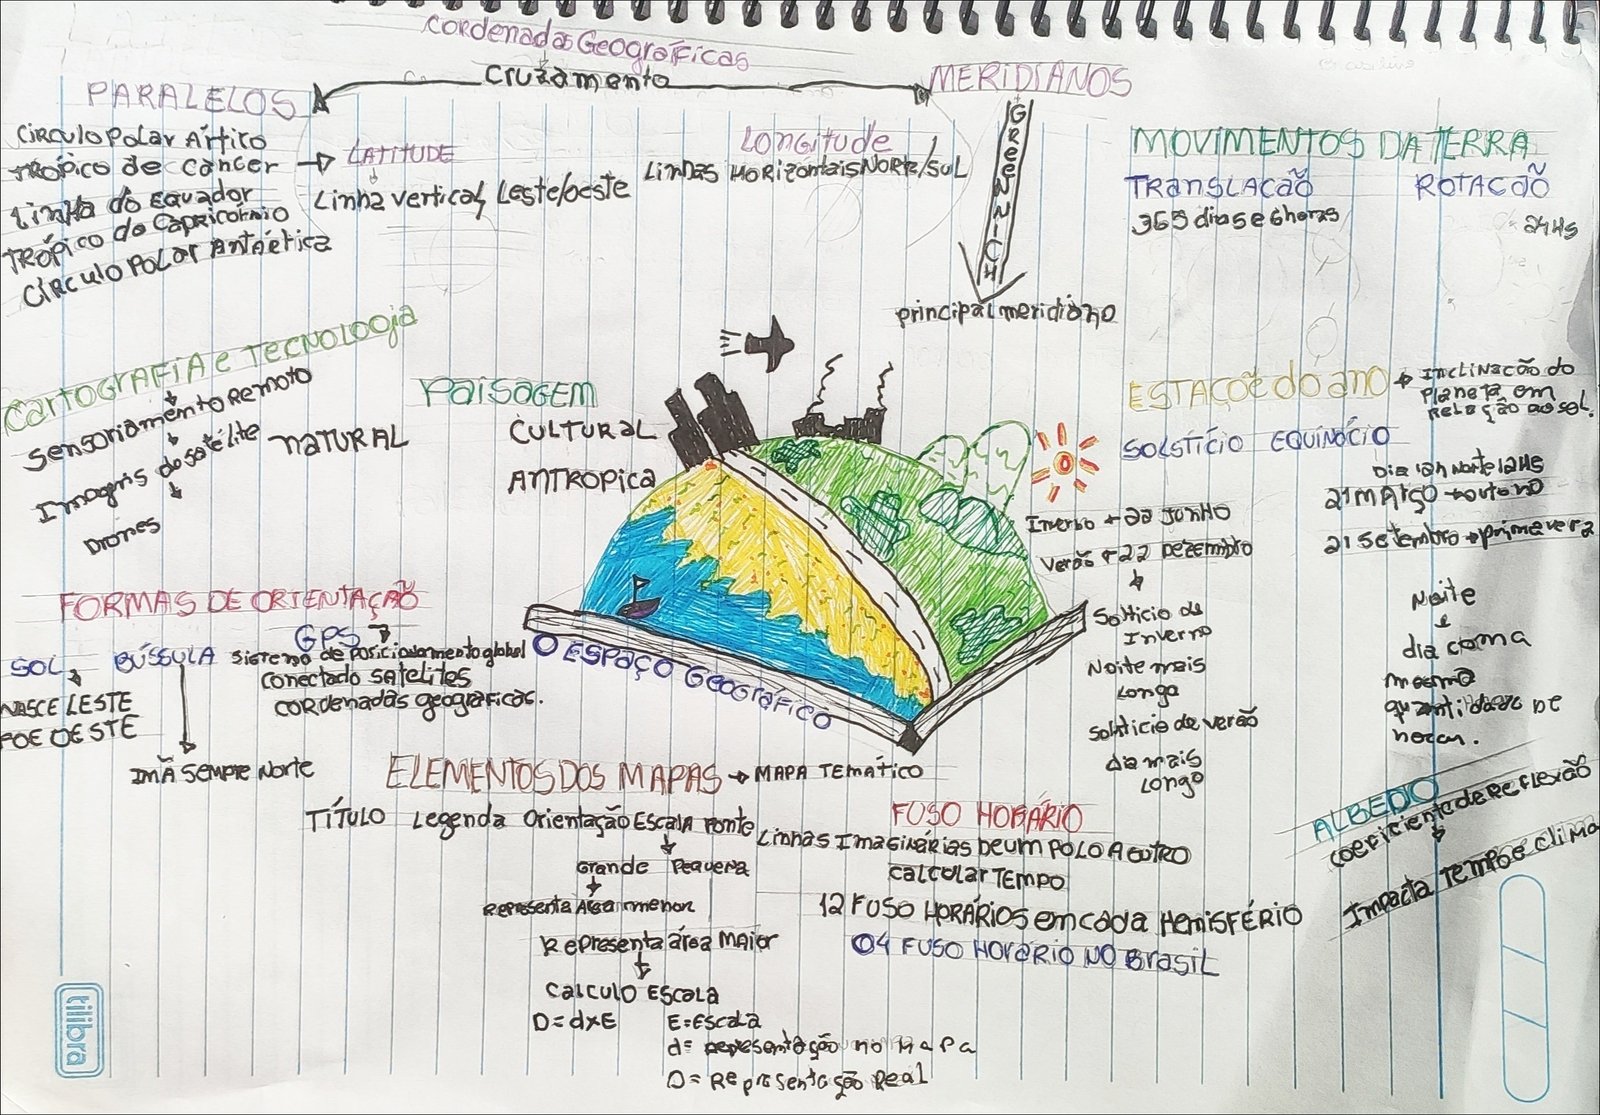 Cordenadas Geográficas
Cruzamento
PARALELOS
MERIDIANOS
CIRCULO POLAR ÁRTICO
TRÓPICO DE CANCER
LINHA DO EQUADOR
TRÓPICO DO CAPRICÓRNIO
CÍRCULO POLAR ANTÁRTICA
LATITUDE
Linha vertical, Leste/oeste
Longitude
LINDAS HORIZONTAIS NORTE/SUL
GREENNICH
principal meridiano
MOVIMENTOS DA TERRA
TRANSLAÇÃO
ROTAÇÃO
365 dias e 6 horas
24Hs
Cartografia e Tecnologia
Sensoriamento Remoto
Imagens do satélite
Drones
Paisagem
NATURAL
CULTURAL
ANTROPICA
ESTAÇOE do ano
INCLINAÇÃO do
Planeta em
Relação ao sol.
SOLSTÍCIO
EQUINÓCIO
Inverno 22 JUNHO
Verão 22 DEZEMBRO
Solticio de
Inverno
Noite mais
Longa
Solsticio de verão
dia mais
Longo
Dia 12h Noite 12Hs
21 MARÇO outono
21 Setembro primavera
Noite
e
dia coma
mesma
quantidade DE
horas.
FORMAS DE ORIENTAÇÃO
SOL
BÚSSULA
GPS
NASCE LESTE
POE OESTE
IMÃ SEMPRE NORTE
Sistemo de Posicionamento global
Conectado satelites
cordenadas geograficas.
O ESPAÇO Geográfico
ELEMENTOS DOS MAPAS
MAPA TEMÁTICO
TÍTULO Legenda Orientação ESCALA FONTE
Grande Pequena
Representa Área menor
Representa área MAior
CALCULO ESCALA
D=dxE
E=ESCALA
d= representação no MaPa
D= Representação Real
FUSO HORÁRIO
Linhas IMAGINÁRIAS DE UM POLO A OUTRO
CALCULAR TEMPO
12 FUSO HORÁRIOS em cada HEMISFÉRIO
04 FUSO HORÁRIO NO BRASIL
ALBEDO
COEFICIENTE DE REFLEXÃO
IMPACTA TEMPO e Clima
tilibra